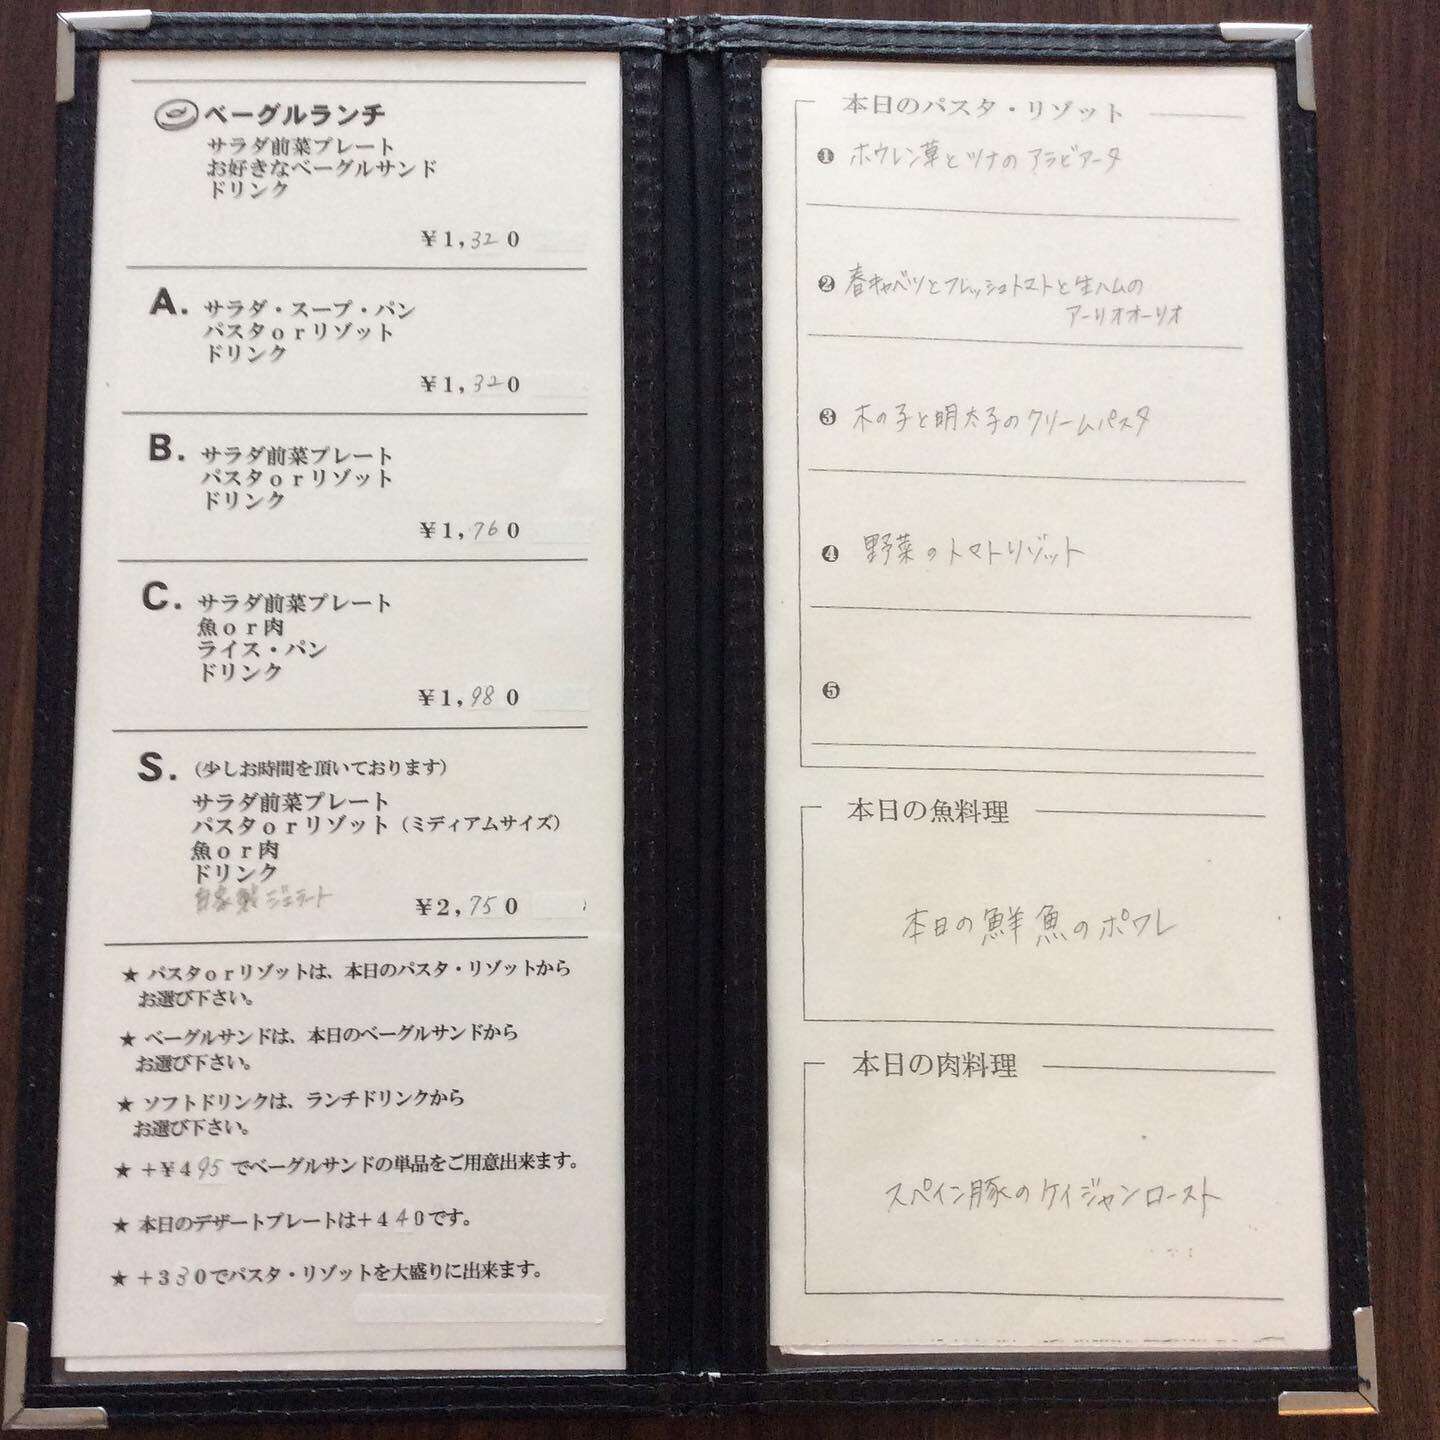 ベーグルランチ
サラダ前菜プレート
お好きなベーグルサンド
ドリンク
¥1,320
A. サラダ・スープ・パン
パスタorリゾット
ドリンク
¥1,320
B. サラダ前菜プレート
パスタorリゾット
ドリンク
¥1,760
C. サラダ前菜プレート
魚or肉
ライス・パン
ドリンク
¥1,980
S. (少しお時間を頂いております)
サラダ前菜プレート
パスタorリゾット(ミディアムサイズ)
魚or肉
ドリンク
自家製ジェラート
¥2,750
★ パスタorリゾットは、本日のパスタ・リゾットから
お選び下さい。
★ ベーグルサンドは、本日のベーグルサンドから
お選び下さい。
★ ソフトドリンクは、ランチドリンクから
お選び下さい。
★ +¥495でベーグルサンドの単品をご用意出来ます。
★ 本日のデザートプレートは+440です。
★ +330でパスタ・リゾットを大盛りに出来ます。
本日のパスタ・リゾット
❶ ホウレン草とツナのアラビアータ
❷ 春キャベツとフレッシュトマトと生ハムの
アーリオオーリオ
❸ 木の子と明太子のクリームパスタ
❹ 野菜のトマトリゾット
❺
本日の魚料理
本日の鮮魚のポワレ
本日の肉料理
スペイン豚のケイジャンロースト